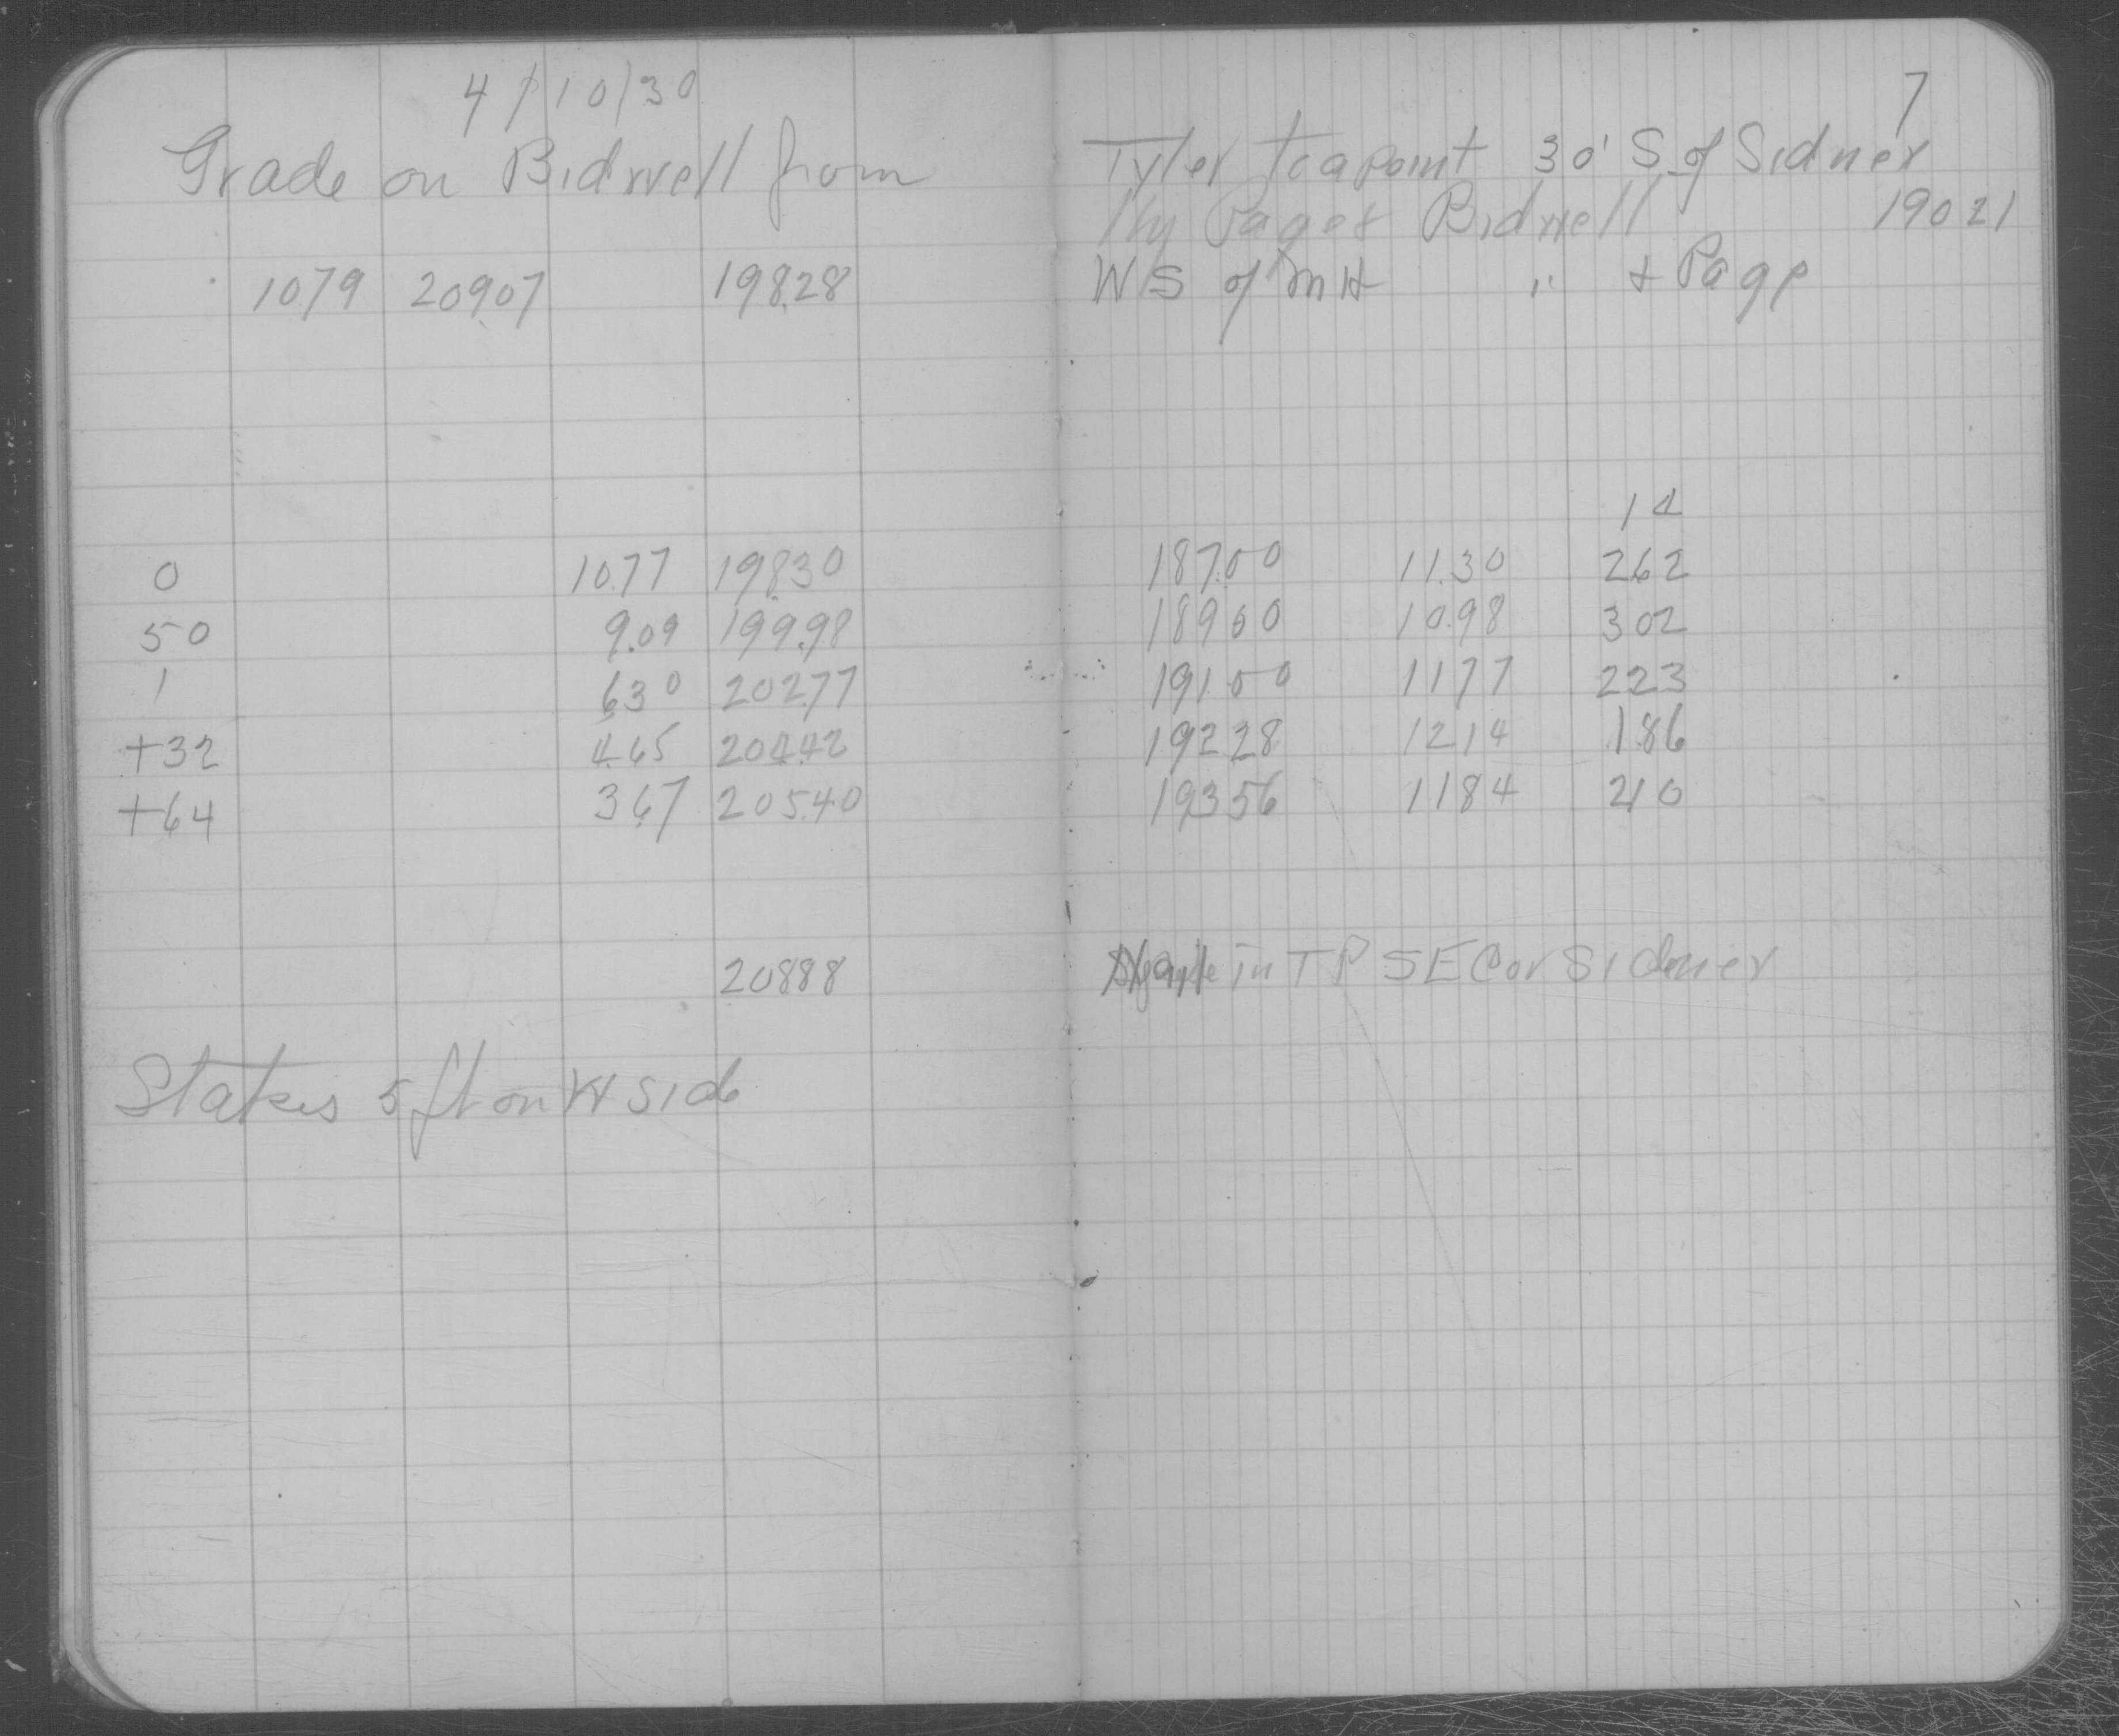 4/10/30
Grade on Bidwell from
1079 209.07 198.28
0 10.77 198.30
50 9.09 199.98
1 6.30 202.77
+32 4.65 204.42
+64 3.67 205.40
208.88
Stakes 5 ft on W side
7
Tyler to a point 30' S. of Sidner
Hy Page & Bidwell 19021
WS of MH " & Page
14
187.00 11.30 262
189 00 10.98 302
191.00 1177 223
192 28 1214 1.86
193 56 1184 210
in TP SE Cor Sidner